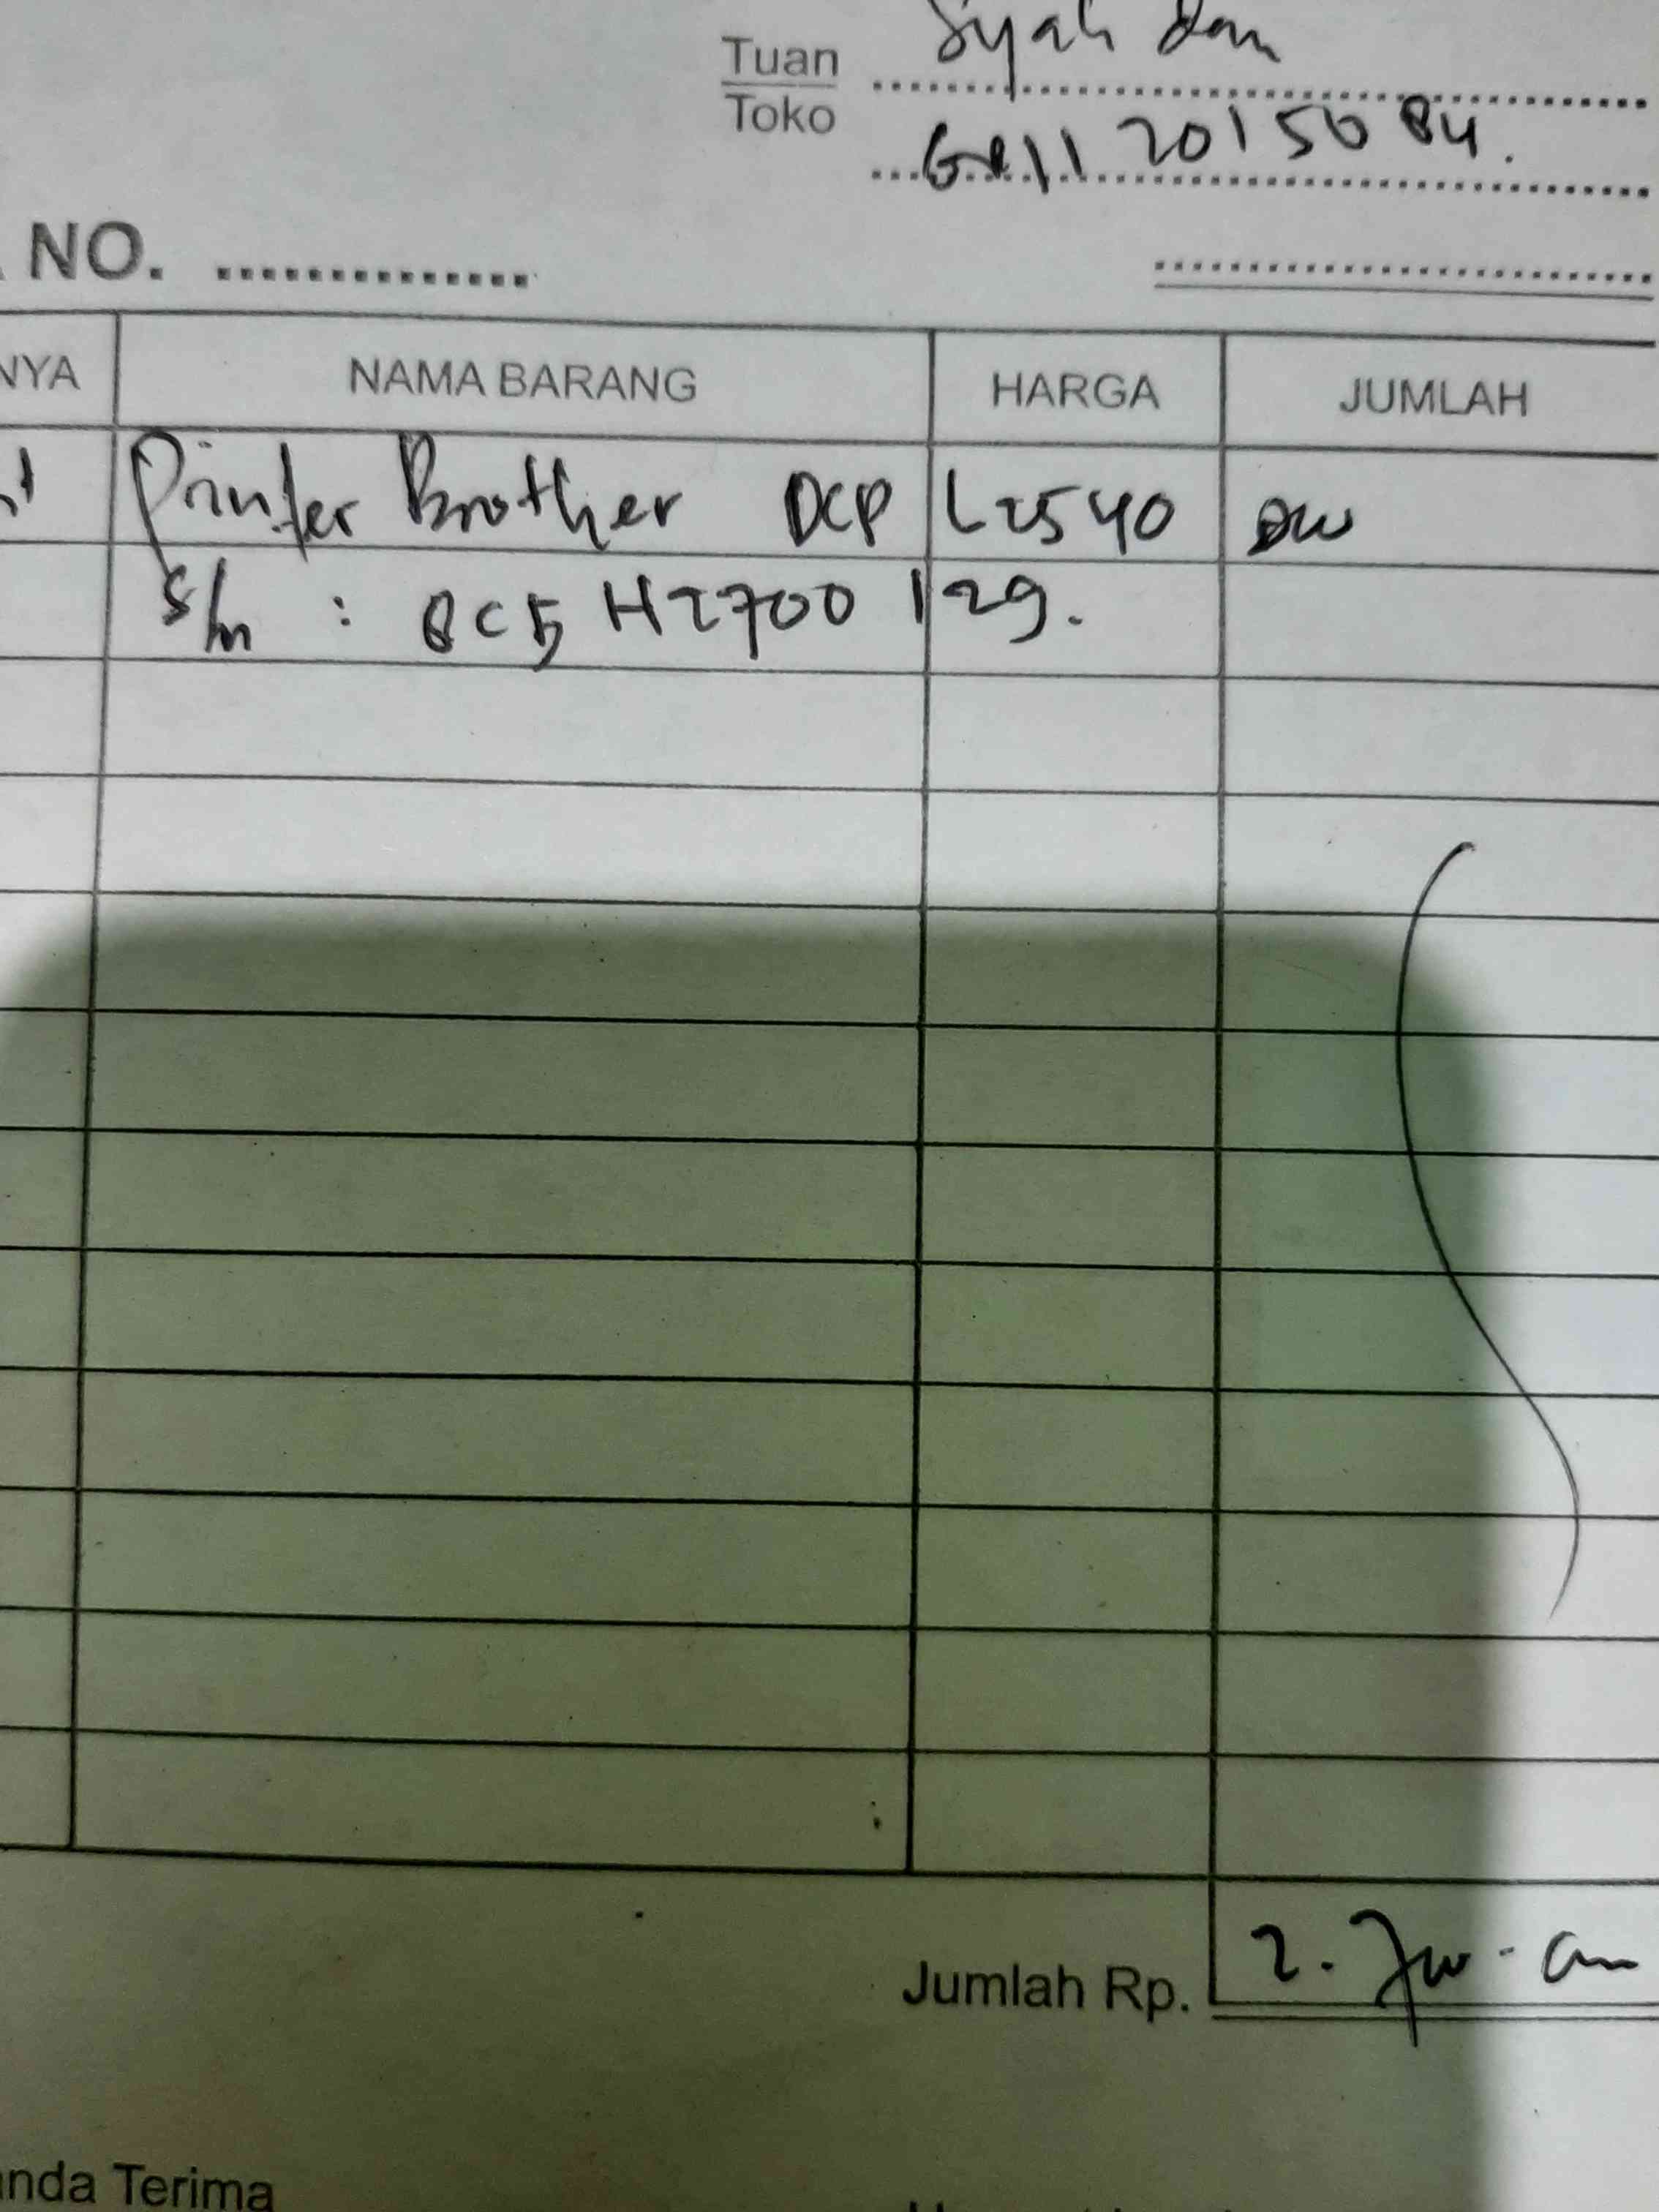 Syah dan
Tuan
Toko
0811 2015084.
NO. ..............
NYA NAMA BARANG HARGA JUMLAH
Printer Brother DCP L2540 DW
S/n : 8C5 H2700 129.
Jumlah Rp. 2.
anda Terima